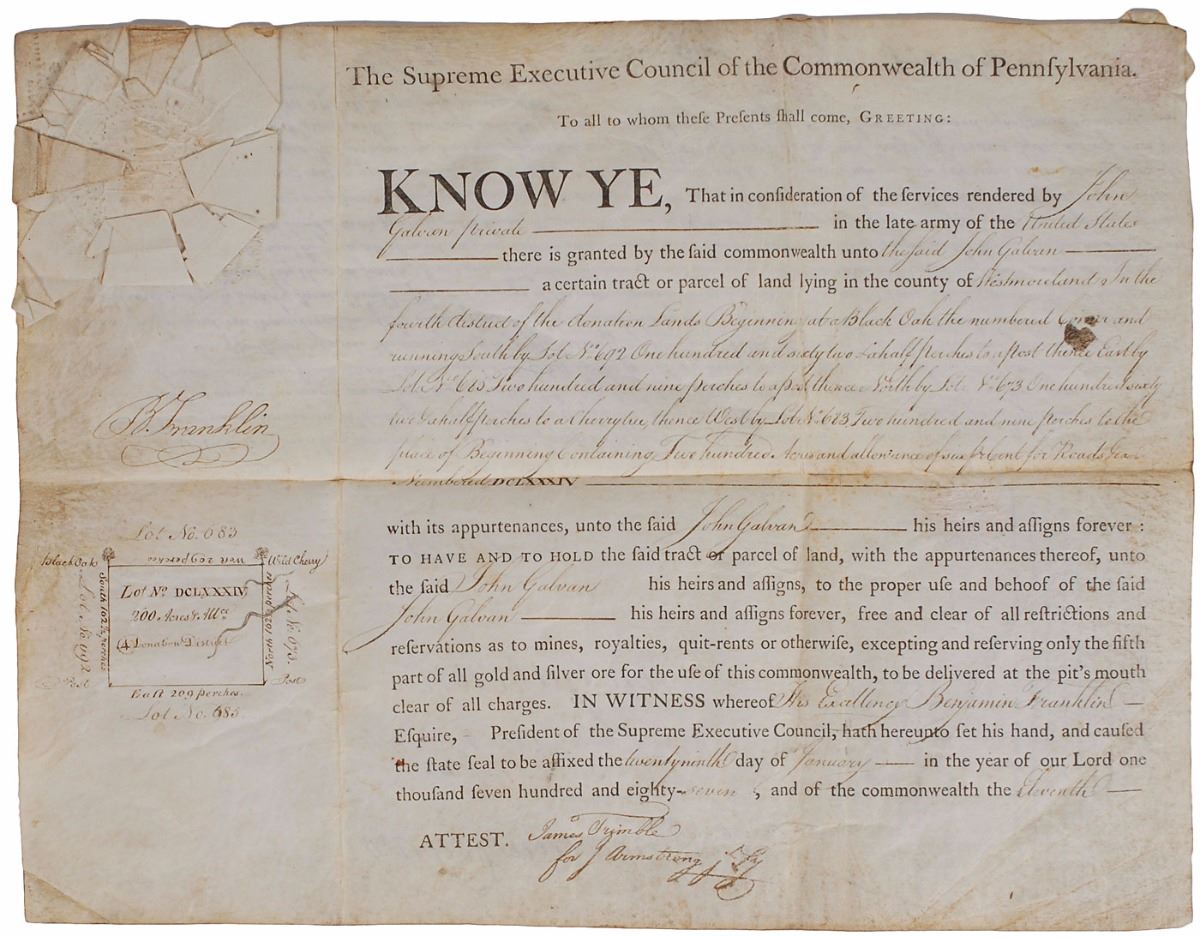 The Supreme Executive Council of the Commonwealth of Pennſylvania.
To all to whom theſe Preſents ſhall come, GREETING:
KNOW YE, That in conſideration of the ſervices rendered by John
Galvan private in the late army of the United States
there is granted by the ſaid commonwealth unto the ſaid John Galvan
a certain tract or parcel of land lying in the county of Westmoreland In the
fourth district of the donation Lands Beginning at a Black Oak the numbered Corner and
running South by Lot No. 692 One hundred and sixty two & a half perches to a post thence East by
Lot No. 685 Two hundred and nine perches to a post thence North by Lot No. 673 One hundred sixty
two & a half perches to a Cherry tree, thence West by Lot No. 683 Two hundred and nine perches to the
place of Beginning Containing Two hundred Acres and allowance of six pr Cent for Roads &ca
Numbered DCLXXXIV
with its appurtenances, unto the ſaid John Galvan his heirs and aſſigns forever:
TO HAVE AND TO HOLD the ſaid tract or parcel of land, with the appurtenances thereof, unto
the ſaid John Galvan his heirs and aſſigns, to the proper uſe and behoof of the ſaid
John Galvan his heirs and aſſigns forever, free and clear of all reſtrictions and
reſervations as to mines, royalties, quit-rents or otherwiſe, excepting and reſerving only the fifth
part of all gold and ſilver ore for the uſe of this commonwealth, to be delivered at the pit's mouth
clear of all charges. IN WITNESS whereof His Excellency Benjamin Franklin
Eſquire, Preſident of the Supreme Executive Council, hath hereunto ſet his hand, and cauſed
the ſtate ſeal to be affixed the twenty ninth day of January in the year of our Lord one
thouſand ſeven hundred and eighty-seven, and of the commonwealth the Eleventh
ATTEST. Jamos Trimble
for J Armstrong jr. Secy
B. Franklin
Lot No. 683
Black Oak West 209 perches Wild Cherry
Lot No. DCLXXXIV
200 Acres & Allce
4 Donation District
South 162½ perches
Lot No. 692
North 162½ perches
Lot No. 673
Post Post
East 209 perches
Lot No. 685